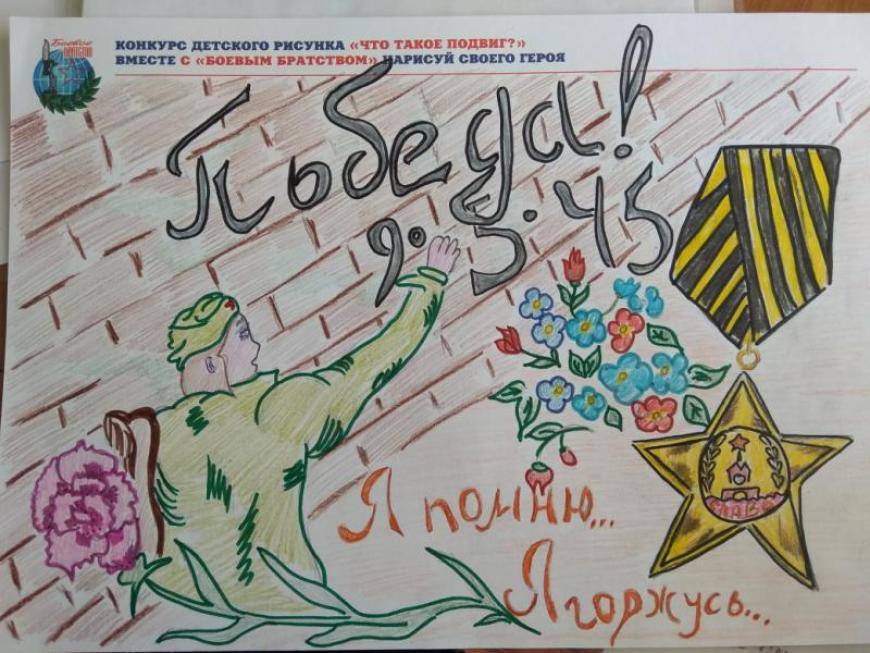 Боевое
братство
КОНКУРС ДЕТСКОГО РИСУНКА «ЧТО ТАКОЕ ПОДВИГ?»
ВМЕСТЕ С «БОЕВЫМ БРАТСТВОМ» НАРИСУЙ СВОЕГО ГЕРОЯ
Победа!
9.5.45
СЛАВА
Я помню...
Я горжусь...